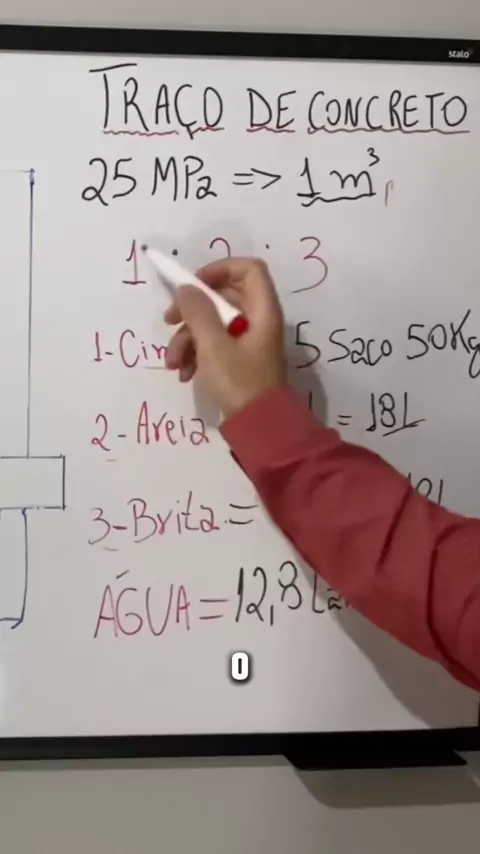 stalo
TRAÇO DE CONCRETO
25 MPa => 1 m³
1 : 2 : 3
1-Cim 5 Saco 50Kg
2-Areia = 18L
3-Brita =
ÁGUA = 12,8
O